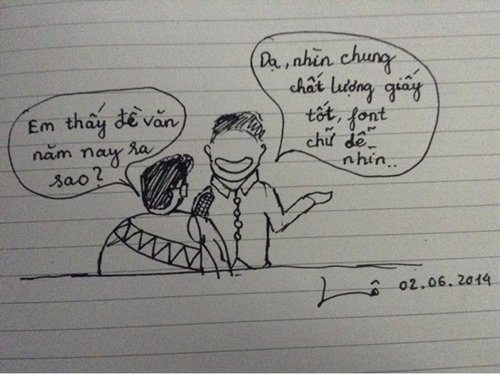 Em thấy đề văn
năm nay ra
sao?
Dạ, nhìn chung
chất lượng giấy
tốt, font
chữ dễ
nhìn..
Lô 02.06.2014